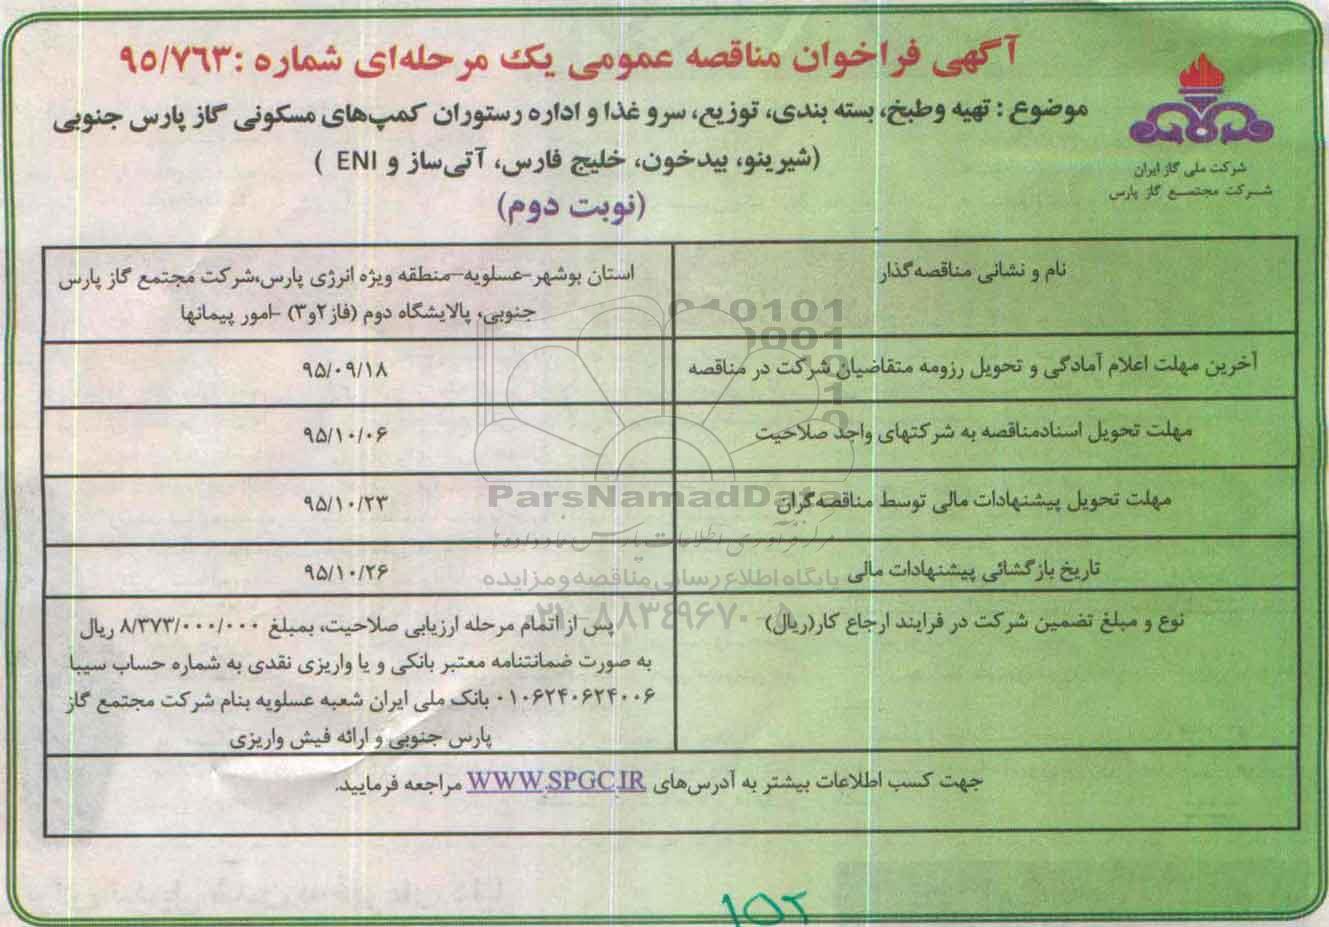 آگهی فراخوان مناقصه عمومی یک مرحله‌ای شماره :۹۵/۷۶۳
موضوع : تهیه وطبخ، بسته بندی، توزیع، سرو غذا و اداره رستوران کمپ‌های مسکونی گاز پارس جنوبی
(شیرینو، بیدخون، خلیج فارس، آتی‌ساز و ENI )
(نوبت دوم)
شرکت ملی گاز ایران
شرکت مجتمع گاز پارس
نام و نشانی مناقصه‌گذار
استان بوشهر-عسلویه-منطقه ویژه انرژی پارس،شرکت مجتمع گاز پارس
جنوبی، پالایشگاه دوم (فاز۲و۳) -امور پیمانها
آخرین مهلت اعلام آمادگی و تحویل رزومه متقاضیان شرکت در مناقصه
۹۵/۰۹/۱۸
مهلت تحویل اسنادمناقصه به شرکتهای واجد صلاحیت
۹۵/۱۰/۰۶
مهلت تحویل پیشنهادات مالی توسط مناقصه‌گران
۹۵/۱۰/۲۳
تاریخ بازگشائی پیشنهادات مالی
۹۵/۱۰/۲۶
نوع و مبلغ تضمین شرکت در فرایند ارجاع کار(ریال)
پس از اتمام مرحله ارزیابی صلاحیت، بمبلغ ۸/۳۷۳/۰۰۰/۰۰۰ ریال
به صورت ضمانتنامه معتبر بانکی و یا واریزی نقدی به شماره حساب سیبا
۰۱۰۶۲۴۰۶۲۴۰۰۶ بانک ملی ایران شعبه عسلویه بنام شرکت مجتمع گاز
پارس جنوبی و ارائه فیش واریزی
جهت کسب اطلاعات بیشتر به آدرس‌های WWW.SPGC.IR مراجعه فرمایید.
ParsNamadData
مرکز فرآوری اطلاعات پارس نماد داده ها
پایگاه اطلاع رسانی مناقصه و مزایده
۰۲۱-۸۸۳۴۹۶۷۰-۵
۱۵۲